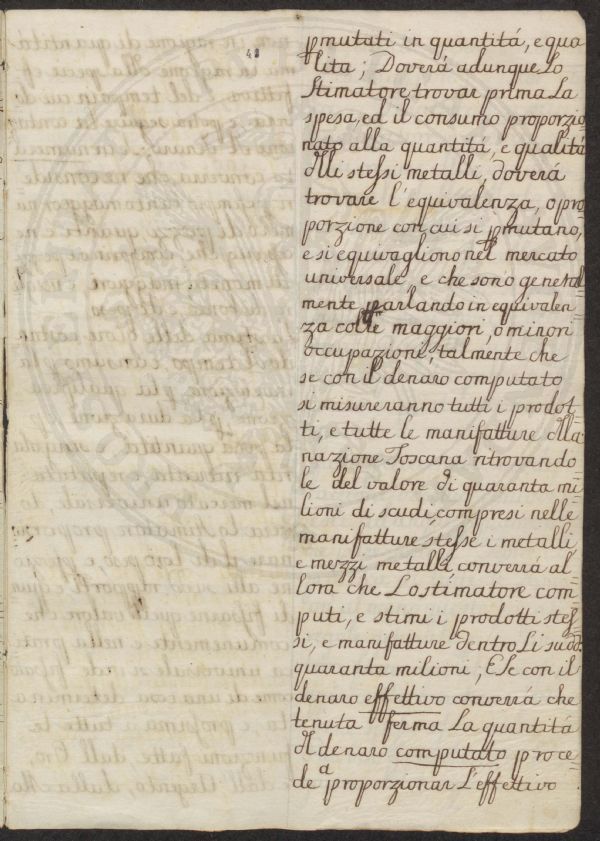 48
pmutati in quantitá, e qua
litá; Doverá adunque Lo
Stimatore trovar prima La
spesa, ed il consumo proporzio
nato alla quantitá, e qualitá
dlli stessi metalli, doverá
trovare l'equivalenza, o pro
porzione con cui si pmutano,
e si equivagliono nel mercato
universale, e che sono general
mente parlando in equivalen
za colle maggiori, o minori
occupazione, talmente che
se con il denaro computato
si misureranno tutti i prodot
ti, e tutte le manifatture dlla
nazione Toscana ritrovando
le del valore di quaranta mi
lioni di scudi compresi nelle
manifatture stesse i metalli,
e mezzi metalli converrá al
lora che Lo stimatore com
puti, e stimi i prodotti stes
si, e manifatture dentro Li sudd.
quaranta milioni; E Se con il
denaro effettivo converrá che
tenuta ferma La quantitá
dl denaro computato proce
de a proporzionar L'effettivo